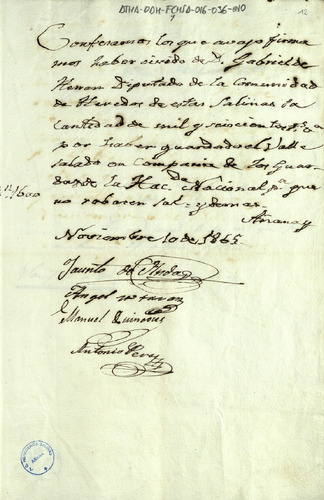 ATHA-DOH-FCHSA-016-036-010
12
Confesamos los que avajo firma
mos haber recivido de D. Gabriel de
Herran Diputado de la Comunidad
de Herederos de estas Salinas la
cantidad de mil y seiscientos
por haber guardado el Valle
salado en Compania de los Guar
das de la Hac.da Nacional p.a que
no robasen sal y demas.
Añana y
Noviembre 10 de 1865
1600
Jacinto de
Angel
Manuel
Antonio Perez